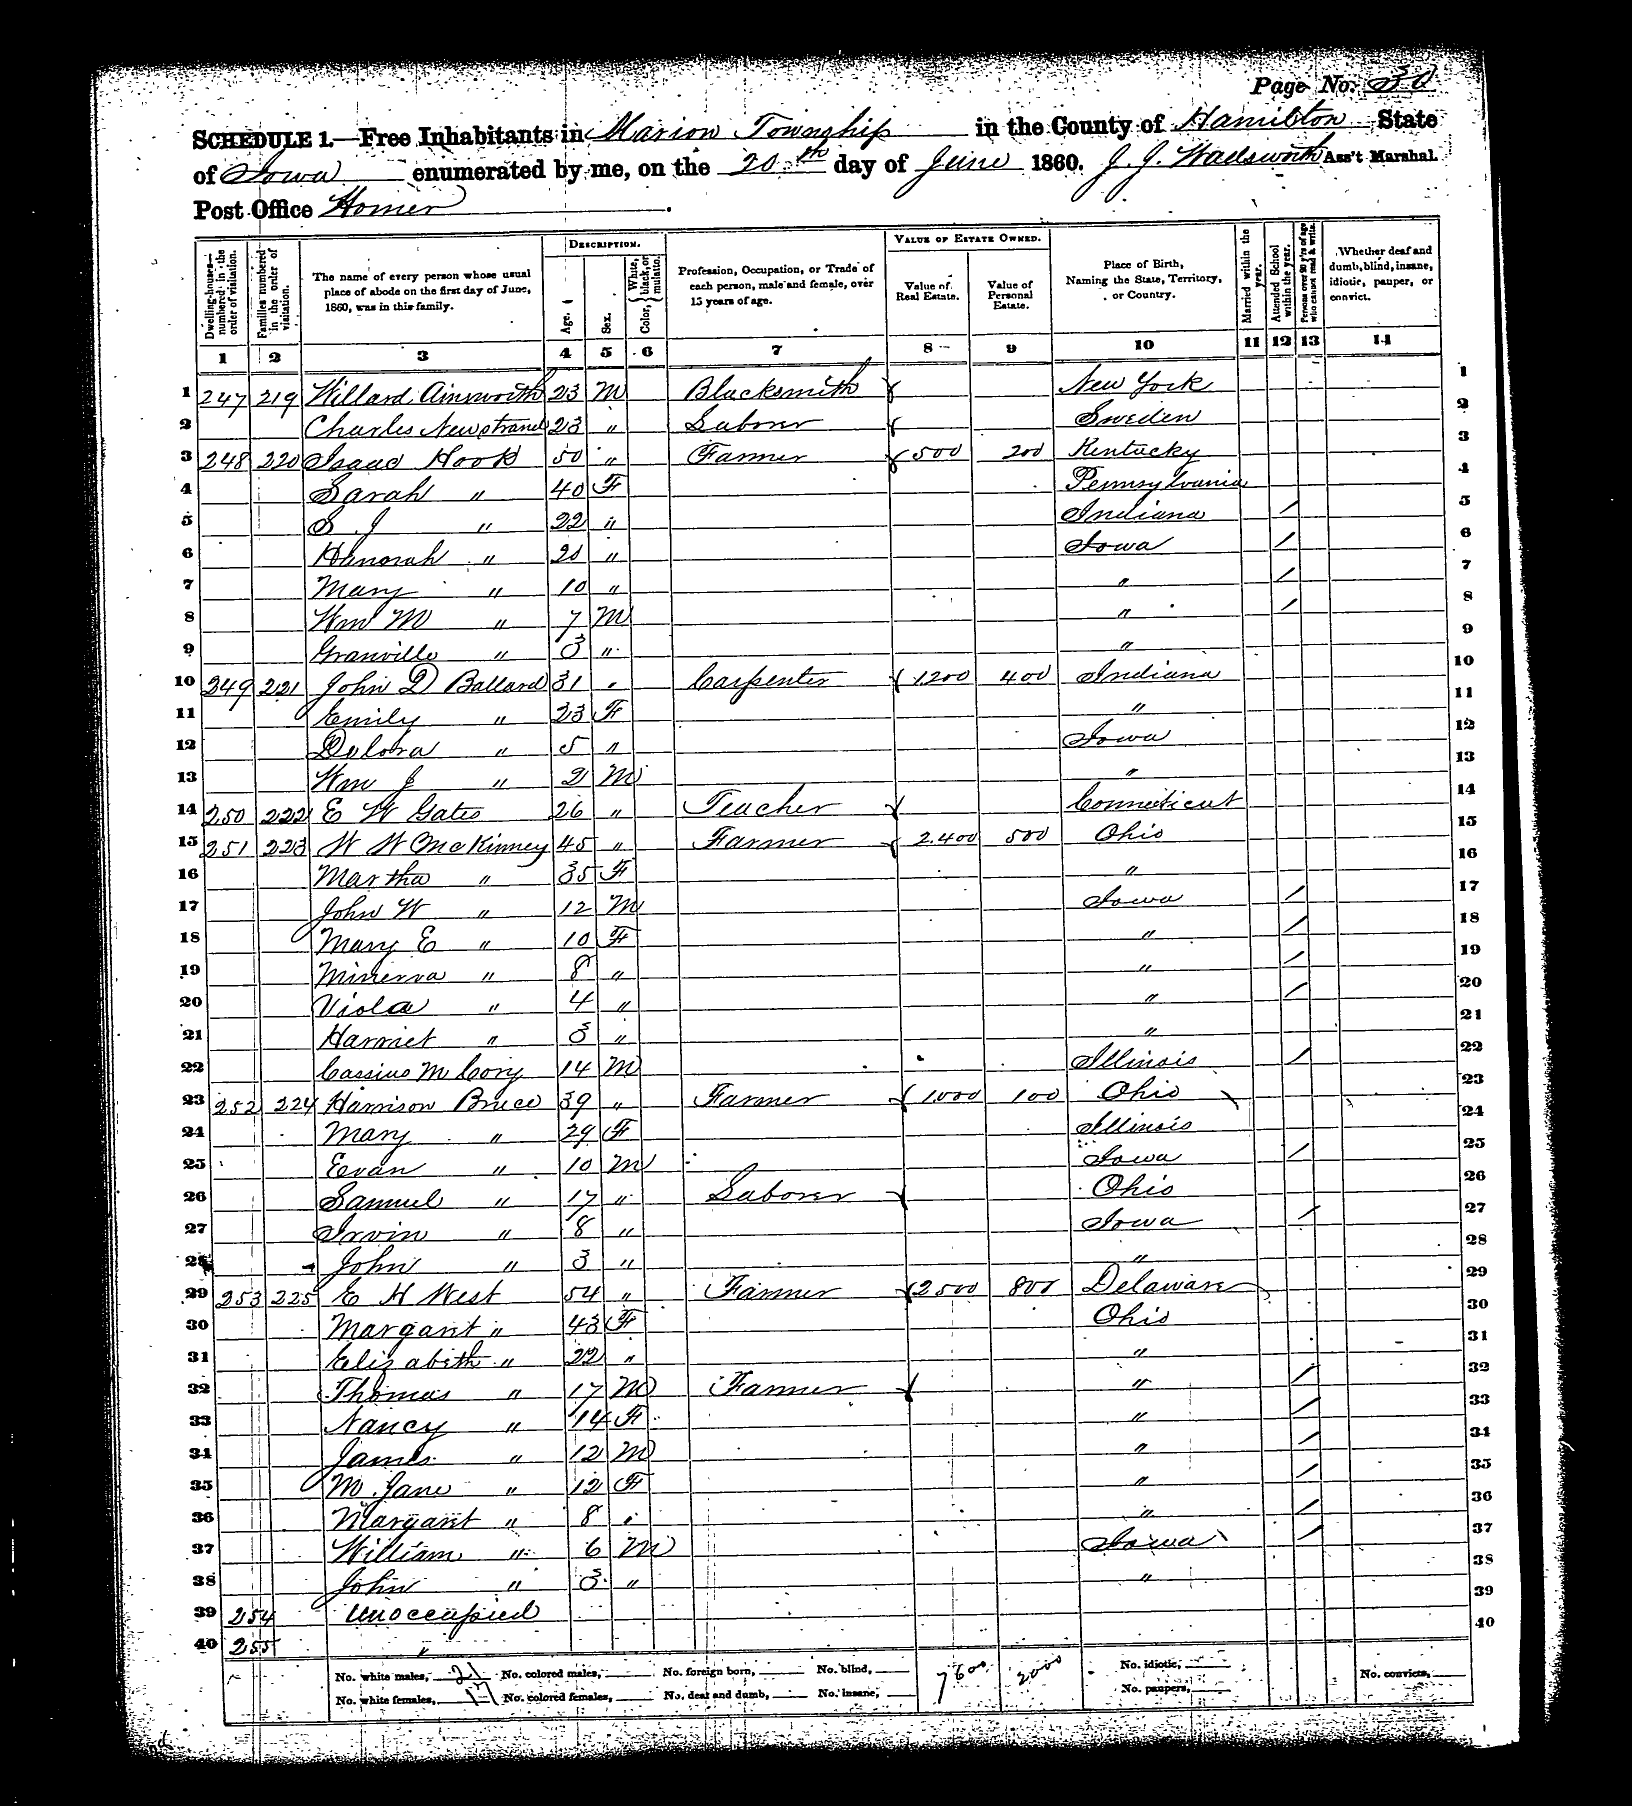 Page No. 30
SCHEDULE 1.—Free Inhabitants in Marion Township in the County of Hamilton State
of Iowa enumerated by me, on the 20th day of June 1860. J. J. Wadsworth Ass't Marshal.
Post Office Homer
Dwelling-houses—numbered in the order of visitation.
Families numbered in the order of visitation.
The name of every person whose usual place of abode on the first day of June, 1860, was in this family.
DESCRIPTION.
Age.
Sex.
Color, {White, black, or mulatto.
Profession, Occupation, or Trade of each person, male and female, over 15 years of age.
VALUE OF ESTATE OWNED.
Value of Real Estate.
Value of Personal Estate.
Place of Birth, Naming the State, Territory, or Country.
Married within the year.
Attended School within the year.
Persons over 20 y'rs of age who cannot read & write.
Whether deaf and dumb, blind, insane, idiotic, pauper, or convict.
1 2 3 4 5 6 7 8 9 10 11 12 13 14
1 247 219 Willard Ainsworth 23 M Blacksmith New York 1
2 Charles Newstrand 23 " Laborer Sweden 2
3 248 220 Isaac Hook 50 " Farmer 500 200 Kentucky 3
4 Sarah " 40 F Pennsylvania 4
5 S J " 22 " Indiana / 5
6 Hanorah " 20 " Iowa / 6
7 Mary " 10 " " / 7
8 Wm M " 7 M " / 8
9 Granville " 3 " " 9
10 249 221 John D Ballard 31 " Carpenter 1200 400 Indiana 10
11 Emily " 23 F " 11
12 Delora " 5 " Iowa 12
13 Wm J " 2 M " 13
14 250 222 E W Gates 26 " Teacher Connecticut 14
15 251 223 W W McKinney 45 " Farmer 2.400 500 Ohio 15
16 Martha " 35 F " 16
17 John W " 12 M Iowa / 17
18 Mary E " 10 F " / 18
19 Minerva " 8 " " / 19
20 Viola " 4 " " / 20
21 Harriet " 3 " " 21
22 Cassius M Cory 14 M Illinois / 22
23 252 224 Harrison Bruce 39 " Farmer 1000 100 Ohio 23
24 Mary " 29 F Illinois 24
25 Evan " 10 M Iowa / 25
26 Samuel " 17 " Laborer Ohio 26
27 Irvin " 8 " Iowa / 27
28 John " 3 " " 28
29 253 225 E H West 54 " Farmer 2500 800 Delaware 29
30 Margaret " 43 F Ohio 30
31 Elizabeth " 22 " " 31
32 Thomas " 17 M Farmer " / 32
33 Nancy " 14 F " / 33
34 James " 12 M " / 34
35 M Jane " 12 F " / 35
36 Margaret " 8 " " / 36
37 William " 6 M Iowa / 37
38 John " 3 " " 38
39 254 Unoccupied 39
40 255 " 40
No. white males, 21 No. colored males, No. foreign born, No. blind, 7600 2000 No. idiotic, No. convicts,
No. white females, 17 No. colored females, No. deaf and dumb, No. insane, No. paupers,